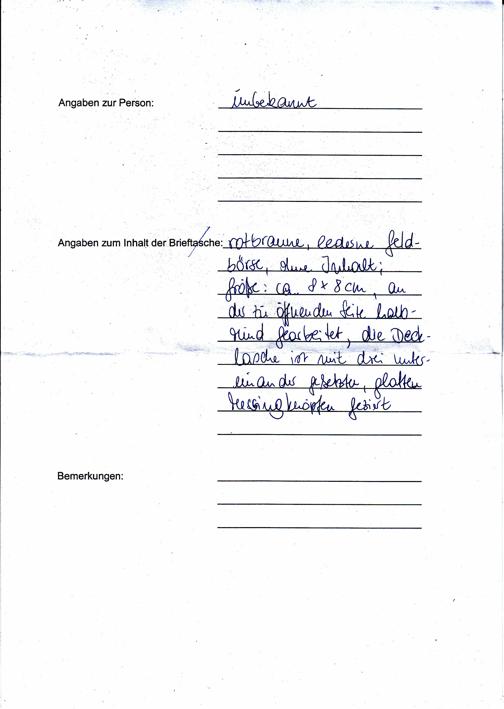 Angaben zur Person: unbekannt
Angaben zum Inhalt der Brieftasche: rotbraune, lederne Geld-
börse, ohne Inhalt;
Größe: ca. 8 x 8 cm, an
der zu öffnenden Seite halb-
rund gearbeitet, die Deck-
lasche ist mit drei unter-
einander gesetzten, glatten
Messingknöpfen geziert
Bemerkungen: